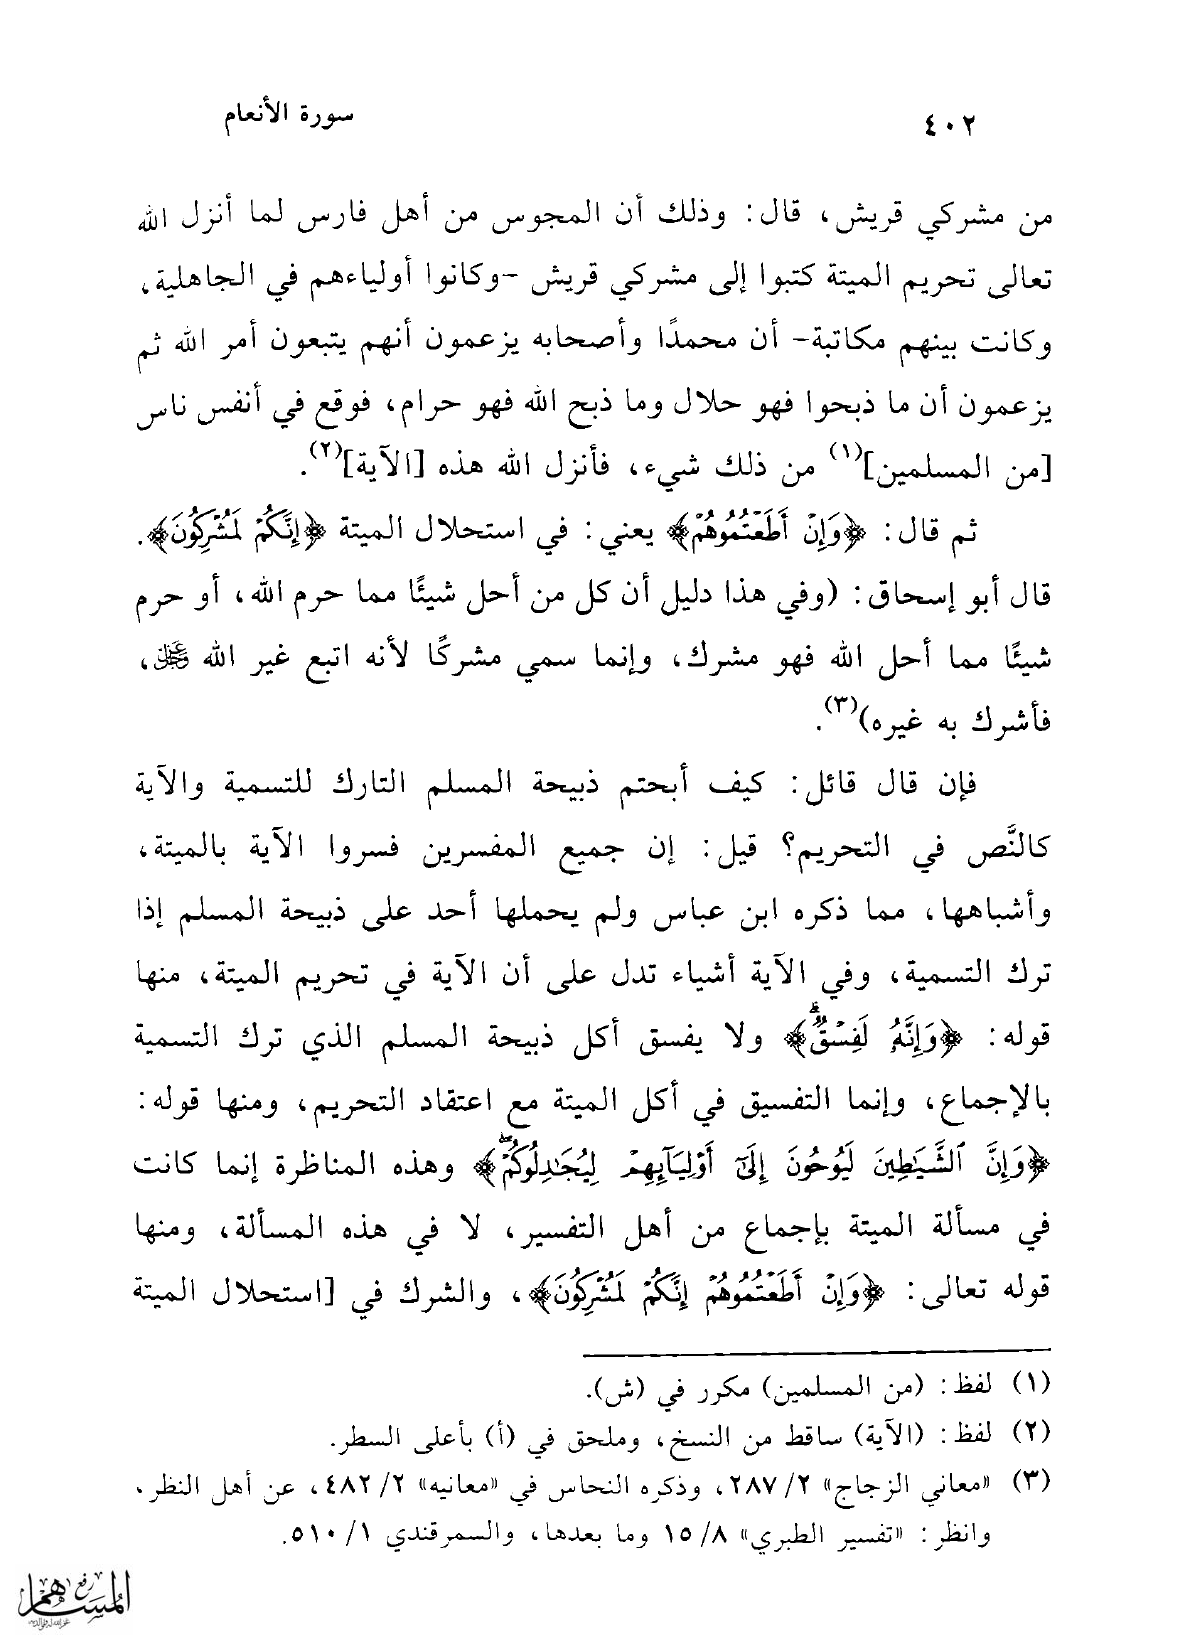 ٤٠٢ سورة الأنعام
من مشركي قريش، قال: وذلك أن المجوس من أهل فارس لما أنزل الله
تعالى تحريم الميتة كتبوا إلى مشركي قريش -وكانوا أولياءهم في الجاهلية،
وكانت بينهم مكاتبة- أن محمدًا وأصحابه يزعمون أنهم يتبعون أمر الله ثم
يزعمون أن ما ذبحوا فهو حلال وما ذبح الله فهو حرام، فوقع في أنفس ناس
[من المسلمين](١) من ذلك شيء، فأنزل الله هذه [الآية](٢).
ثم قال: ﴿وَإِنْ أَطَعْتُمُوهُمْ﴾ يعني: في استحلال الميتة ﴿إِنَّكُمْ لَمُشْرِكُونَ﴾.
قال أبو إسحاق: (وفي هذا دليل أن كل من أحل شيئًا مما حرم الله، أو حرم
شيئًا مما أحل الله فهو مشرك، وإنما سمي مشركًا لأنه اتبع غير الله عز وجل،
فأشرك به غيره)(٣).
فإن قال قائل: كيف أبحتم ذبيحة المسلم التارك للتسمية والآية
كالنَّص في التحريم؟ قيل: إن جميع المفسرين فسروا الآية بالميتة،
وأشباهها، مما ذكره ابن عباس ولم يحملها أحد على ذبيحة المسلم إذا
ترك التسمية، وفي الآية أشياء تدل على أن الآية في تحريم الميتة، منها
قوله: ﴿وَإِنَّهُ لَفِسْقٌ﴾ ولا يفسق أكل ذبيحة المسلم الذي ترك التسمية
بالإجماع، وإنما التفسيق في أكل الميتة مع اعتقاد التحريم، ومنها قوله:
﴿وَإِنَّ ٱلشَّيَٰطِينَ لَيُوحُونَ إِلَىٰٓ أَوْلِيَآئِهِمْ لِيُجَٰدِلُوكُمْۖ﴾ وهذه المناظرة إنما كانت
في مسألة الميتة بإجماع من أهل التفسير، لا في هذه المسألة، ومنها
قوله تعالى: ﴿وَإِنْ أَطَعْتُمُوهُمْ إِنَّكُمْ لَمُشْرِكُونَ﴾، والشرك في [استحلال الميتة
(١) لفظ: (من المسلمين) مكرر في (ش).
(٢) لفظ: (الآية) ساقط من النسخ، وملحق في (أ) بأعلى السطر.
(٣) «معاني الزجاج» ٢/ ٢٨٧، وذكره النحاس في «معانيه» ٢/ ٤٨٢، عن أهل النظر،
وانظر: «تفسير الطبري» ٨/ ١٥ وما بعدها، والسمرقندي ١/ ٥١٠.